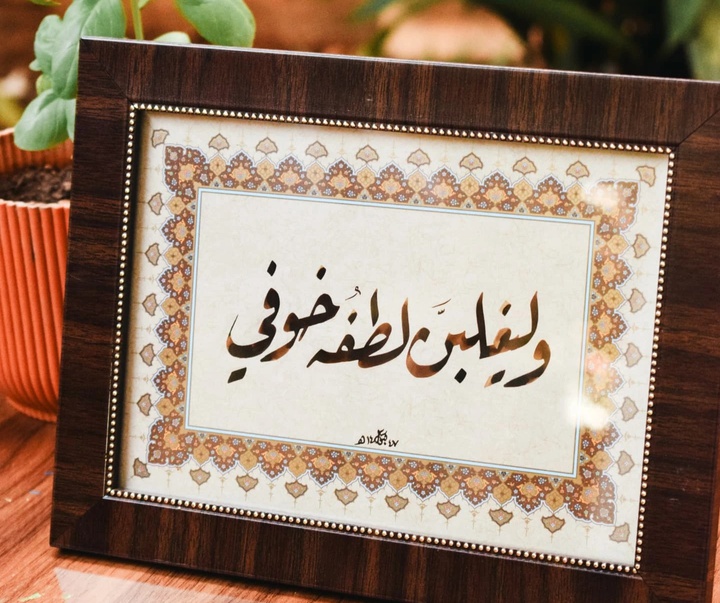 وليغلبنَّ لطفُه خوفي